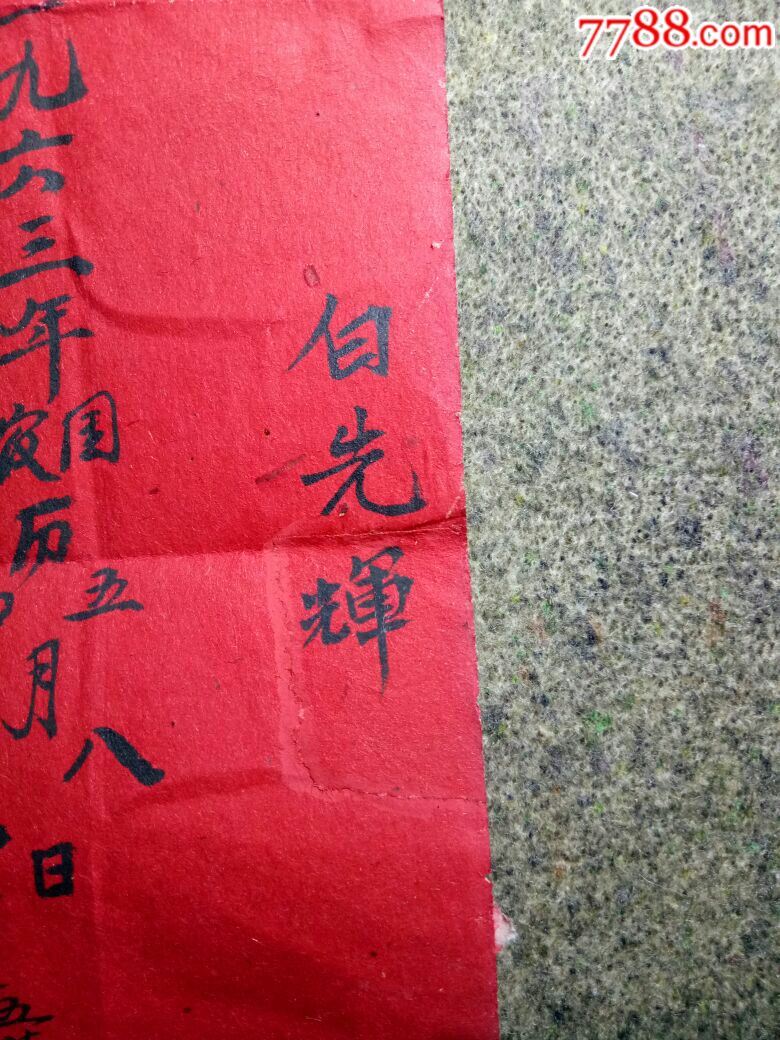 7788.com
白先輝
一九六三年
国
历
五
月
八
日
五